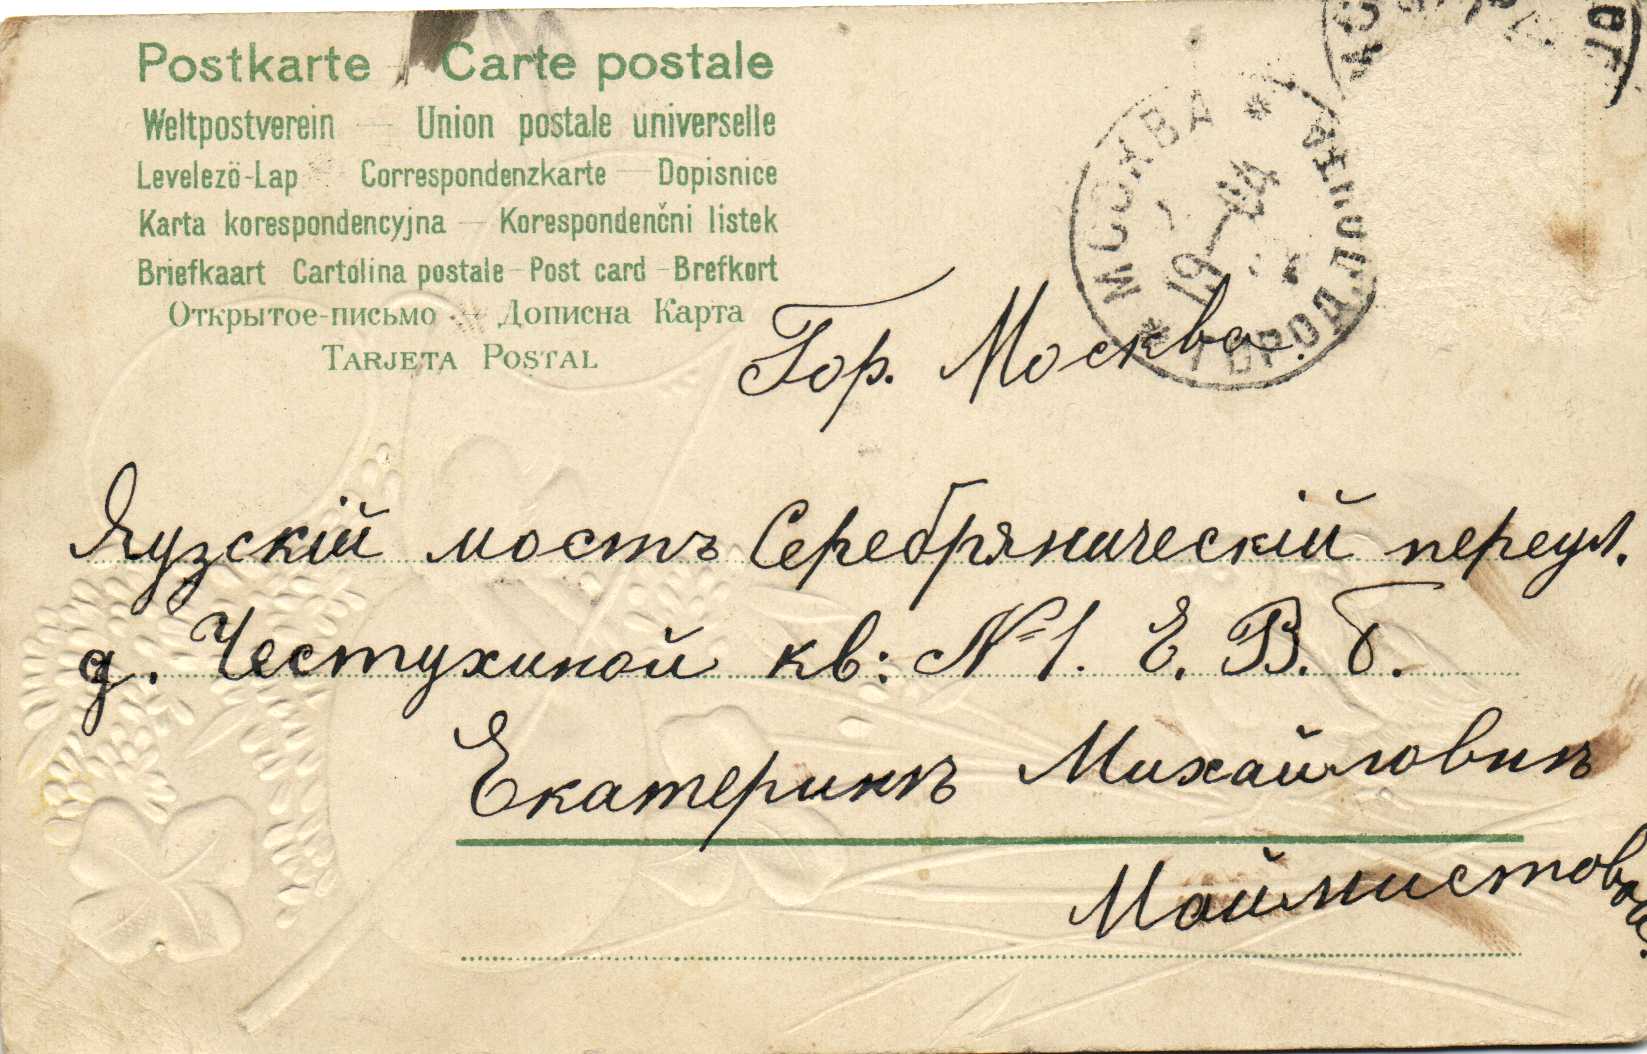 Postkarte — Carte postale
Weltpostverein — Union postale universelle
Levelező-Lap Correspondenzkarte — Dopisnice
Karta korespondencyjna — Korespondenčni listek
Briefkaart Cartolina postale – Post card – Brefkort
Открытое-письмо — Дописна Карта
TARJETA POSTAL
МОСКВА
19
ГОРОД. ПОЧТА
Гор. Москва.
Яузскій мостъ Серебряническій переул.
д. Честухиной кв: № 1. Е. В. Б.
Екатеринѣ Михайловнѣ
Маймистовой.